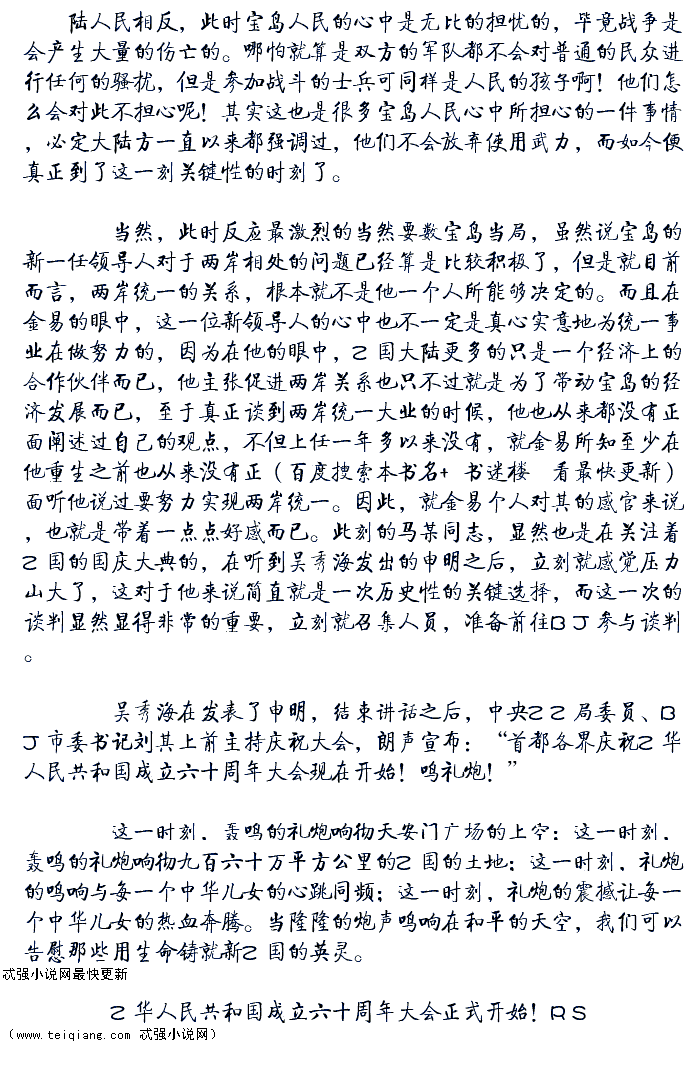 陆人民相反，此时宝岛人民的心中是无比的担忧的，毕竟战争是
会产生大量的伤亡的。哪怕就算是双方的军队都不会对普通的民众进
行任何的骚扰，但是参加战斗的士兵可同样是人民的孩子啊！他们怎
么会对此不担心呢！其实这也是很多宝岛人民心中所担心的一件事情
，必定大陆方一直以来都强调过，他们不会放弃使用武力，而如今便
真正到了这一刻关键性的时刻了。
当然，此时反应最激烈的当然要数宝岛当局，虽然说宝岛的
新一任领导人对于两岸相处的问题已经算是比较积极了，但是就目前
而言，两岸统一的关系，根本就不是他一个人所能够决定的。而且在
金易的眼中，这一位新领导人的心中也不一定是真心实意地为统一事
业在做努力的，因为在他的眼中，Z国大陆更多的只是一个经济上的
合作伙伴而已，他主张促进两岸关系也只不过就是为了带动宝岛的经
济发展而已，至于真正谈到两岸统一大业的时候，他也从来都没有正
面阐述过自己的观点，不但上任一年多以来没有，就金易所知至少在
他重生之前也从来没有正（百度搜索本书名+ 书迷楼 看最快更新）
面听他说过要努力实现两岸统一。因此，就金易个人对其的感官来说
，也就是带着一点点好感而已。此刻的马某同志，显然也是在关注着
Z国的国庆大典的，在听到吴秀海发出的申明之后，立刻就感觉压力
山大了，这对于他来说简直就是一次历史性的关键选择，而这一次的
谈判显然显得非常的重要，立刻就召集人员，准备前往BJ参与谈判
。
吴秀海在发表了申明，结束讲话之后，中央ZZ局委员、B
J市委书记刘其上前主持庆祝大会，朗声宣布：“首都各界庆祝Z华
人民共和国成立六十周年大会现在开始！鸣礼炮！”
这一时刻，轰鸣的礼炮响彻天安门广场的上空；这一时刻，
轰鸣的礼炮响彻九百六十万平方公里的Z国的土地；这一时刻，礼炮
的鸣响与每一个中华儿女的心跳同频；这一时刻，礼炮的震撼让每一
个中华儿女的热血奔腾。当隆隆的炮声鸣响在和平的天空，我们可以
告慰那些用生命铸就新Z国的英灵。
忒强小说网最快更新
Z华人民共和国成立六十周年大会正式开始！RS
（www.teiqiang.com 忒强小说网）